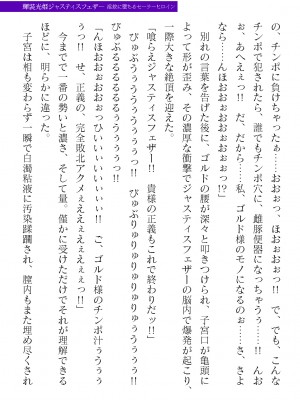 輝装光姫ジャスティスフェザー 淫欲に堕ちるセーラーヒロイン
の、チンポに負けちゃったぁ……おおぉっ、ほおぉぉっ!! で、でも、こんな
チンポで犯されたら、誰でもチンポ穴に、雌豚便器になっちゃう……!! んお
ぉ、あへぇぇっ!! だ、だから……私、ゴルド様のモノになるのぉ……さ、さよ
なら……んほおぉぉおおぉぉっ!?」
別れの言葉を告げた後に、ゴルドの腰が深々と叩きつけられ、子宮口が亀頭に
よって形が歪み、その濃厚な衝撃でジャスティスフェザーの脳内で爆発が起こり、
一際大きな絶頂を迎えた。
「喰らえジャスティスフェザー!! 貴様の正義もこれで終わりだッ!!」
「んほおぉぉおおぉっひぃいぃぃぃぃっ!! ご、ゴルド様のチンポ汁ぅうぅぅ
ぅっ!! せ、正義の、完全敗北アクメぇえぇぇえぇぇっ!!」
今までで一番の勢いと濃さ、そして量。僅かに受けただけでそれが理解できる
ほどに、明らかに違った。
子宮は相も変わらず、一瞬で白濁粘液に汚染蹂躙され、膣内もまた埋め尽くされ